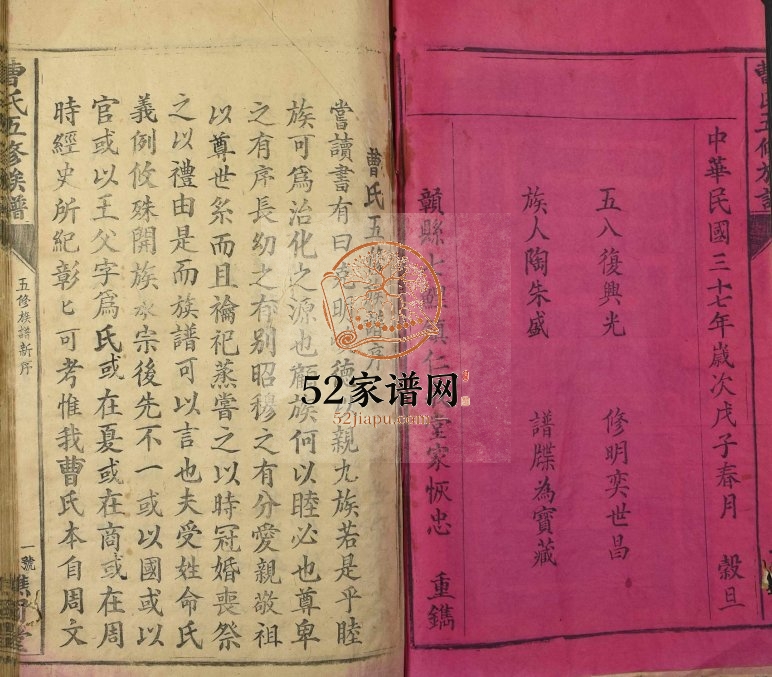 中華民國三十七年歲次戊子春月 穀旦
五八復興光 修明奕世昌
族人陶朱盛 譜牒為寳藏
贛縣 仁 堂家恢忠 重鐫
曹氏五修族譜
曹氏五 序
嘗讀書有曰克明 德 親九族若是乎睦
族可爲治化之源也顧族何以睦必也尊卑
之有序長幼之有別昭穆之有分愛親敬祖
以尊世系而且禴祀蒸嘗之以時冠婚喪祭
之以禮由是而族譜可以言也夫受姓命氏
義例攸殊開族承宗後先不一或以國或以
官或以王父字爲氏或在夏或在商或在周
時經史所紀彰匕可考惟我曹氏本自周文
曹氏五修族譜
五修族譜新序
一號
52家谱网
52jiapu.com